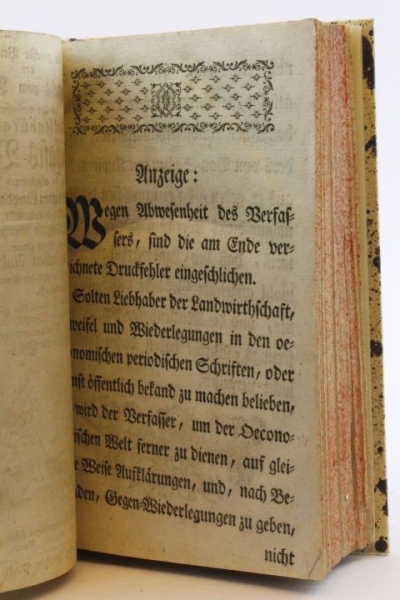 Anzeige:
Wegen Abwesenheit des Verfas-
sers, sind die am Ende ver-
ichnete Druckfehler eingeschlichen.
Solten Liebhaber der Landwirthschaft,
weifel und Wiederlegungen in den oe-
nomischen periodischen Schriften, oder
nst öffentlich bekand zu machen belieben,
wird der Verfasser, um der Oecono-
ischen Welt ferner zu dienen, auf glei-
r Weise Aufklärungen, und, nach Be-
den, Gegen-Wiederlegungen zu geben,
nicht